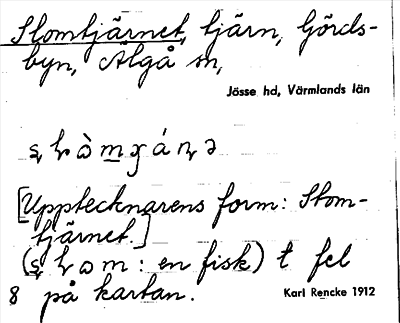 Slomtjärnet, tjärn, Görds-
byn, Älgå sn,
Jösse hd, Värmlands län
[Upptecknarens form: Slom-
tjärnet.]
: en fisk) t fel
8 på kartan.
Karl Rencke 1912